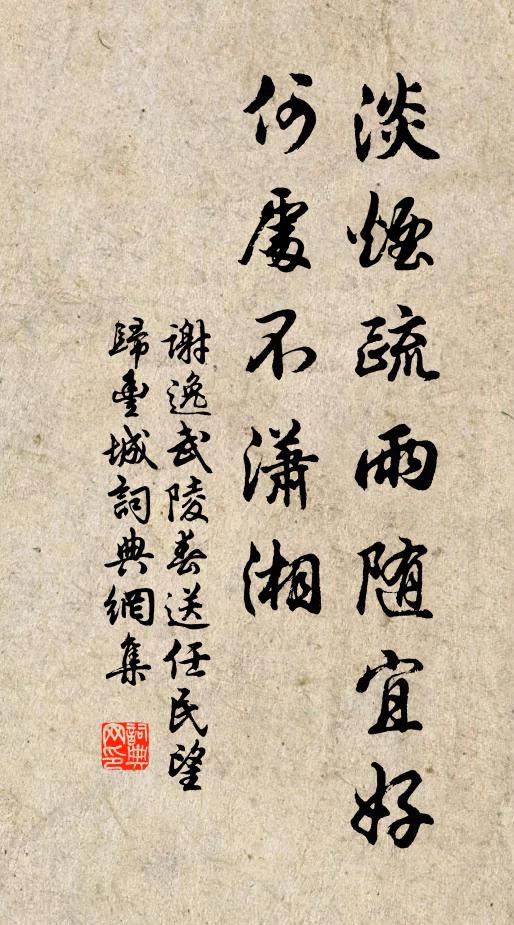 淡煙疏雨随宜好
何處不瀟湘
謝逸武陵春送任民望
歸豐城詞典網集
詞典网印